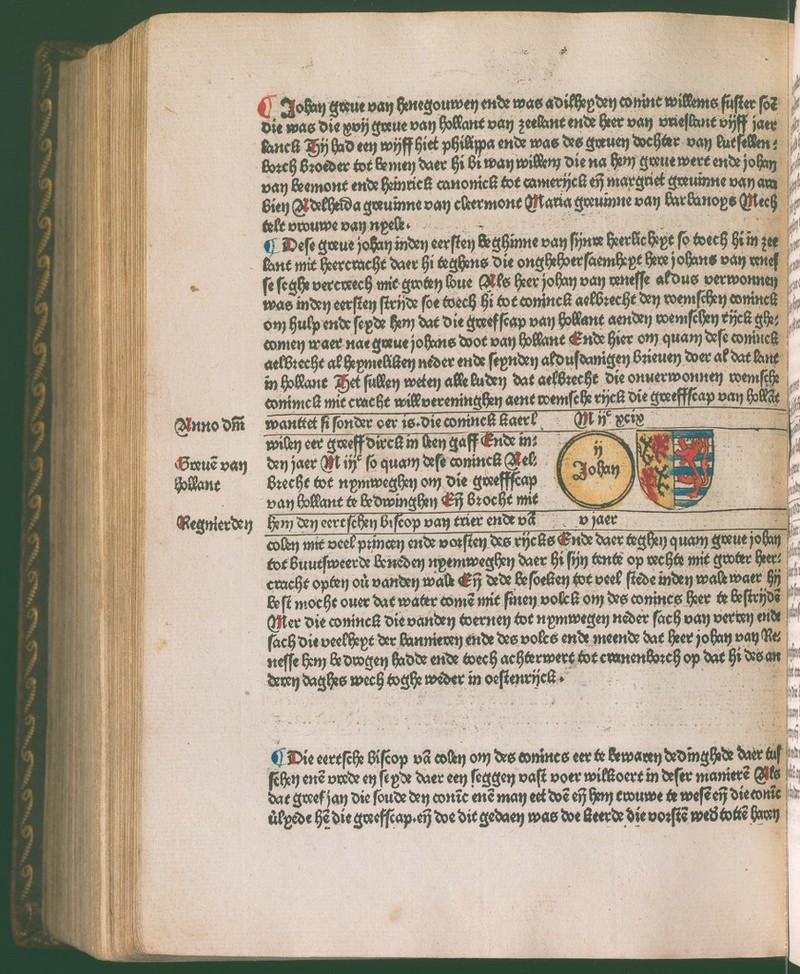 ¶ Johan greue van henegouwen ende was adilheyden coninc willems suster soē
die was die xvij greue van hollant van zeelant ende heer van vrieslant vijff jaer
lanck Hij had een wijff hiet philippa ende was des greuen dochter van lutsellen:
borch broeder tot bemen daer hi bi wan willem die na hem greue wert ende johan
van beemont ende heinrick canonick tot camerijck eñ margriet greuinne van aru
bien Adelheida greuinne van cleermont Maria greuinne van barbanoys Mech
telt vrouwe van nyele.
¶ Dese greue johan inden eersten beghinne van sijnre heerlicheyt so toech hi in zee
lant mit heercracht daer hi teghens die onghehoersaemheyt here johans van renes
se seghe vercreech mit groten loue Als heer johan van renesse aldus verwonnen
was inden eersten strijde soe toech hi tot coninck aelbrecht den roemschen coninck
om hulp ende seyde hem dat die greefscap van hollant aenden roemschen rijck ghe:
comen waer nae greue johans doot van hollant Ende hier om quam dese coninck
aelbrecht al heymeliken neder ende seynden aldusdanigen brieuen doer al dat lant
in hollant Het sullen weten alle luden dat aelbrecht die onuerwonnen roemsche
coninck mit cracht wil vereninghen aent roemsche rijck die greefffcap van hollāt
Anno dm̄ wanttet si sonder oer is. die coninck kaerl M ijᶜ xcix
wilen eer greeff dirck in leen gaff Ende in:
Greuē van den jaer M iijᶜ so quam dese coninck Ael: ij
hollant brecht tot nymweghen om die greefffcap Johan
van hollant te bedwinghen Eñ brocht mit
Regnierden hem den eertschen biscop van trier ende vā v jaer
colen mit veel princen ende vorsten des rijcks Ende daer teghen quam greue johan
tot buutsweerde beneden nyemweghen daer hi sijn tente op rechte mit groter heer:
cracht opten ou̅ vanden wale Eñ dede besoeken tot veel stede inden wale waer hij
best mocht ouer dat water comē mit sinen volck om des conincs heer te bestrijdē
Mer die coninck die vanden toernen tot nymwegen neder sach van verren ende
sach die veelheyt der bannieren ende des volcs ende meende dat heer johan van Re:
nesse hem bedrogen hadde ende toech achterwert tot cranenborch op dat hi des an
deren daghes wech toghe weder in oestenrijck.
¶ Die eertsche biscop vā colen om des conincs eer te bewaren dedinghede daer tus
schen enē vrede en seyde daer een seggen vast voer wilkoert in deser manierē Als
dat greef jan die soude den conīc enē man eet doē eñ hem trouwe te wesē eñ die conīc
u̅lyede hē die greefscap. eñ doe dit gedaen was doe keerde die vorstē wed̄ tottē haren